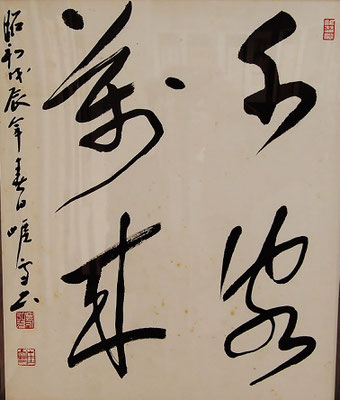 千客
萬来
昭和戊辰年春日